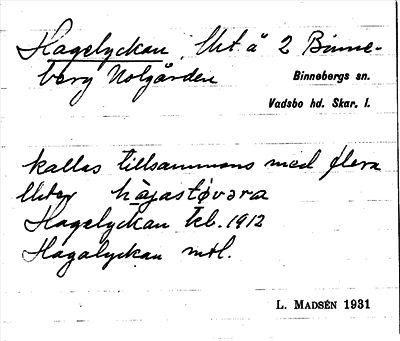 Hagelyckan, Utä 2 Binne-
berg Nolgården
Binnebergs sn.
Vadsbo hd. Skar. l.
kallas tillsammans med flera
hajastøvara
Hagelyckan tkl. 1912
Hagalyckan mtl.
L. MADSÉN 1931